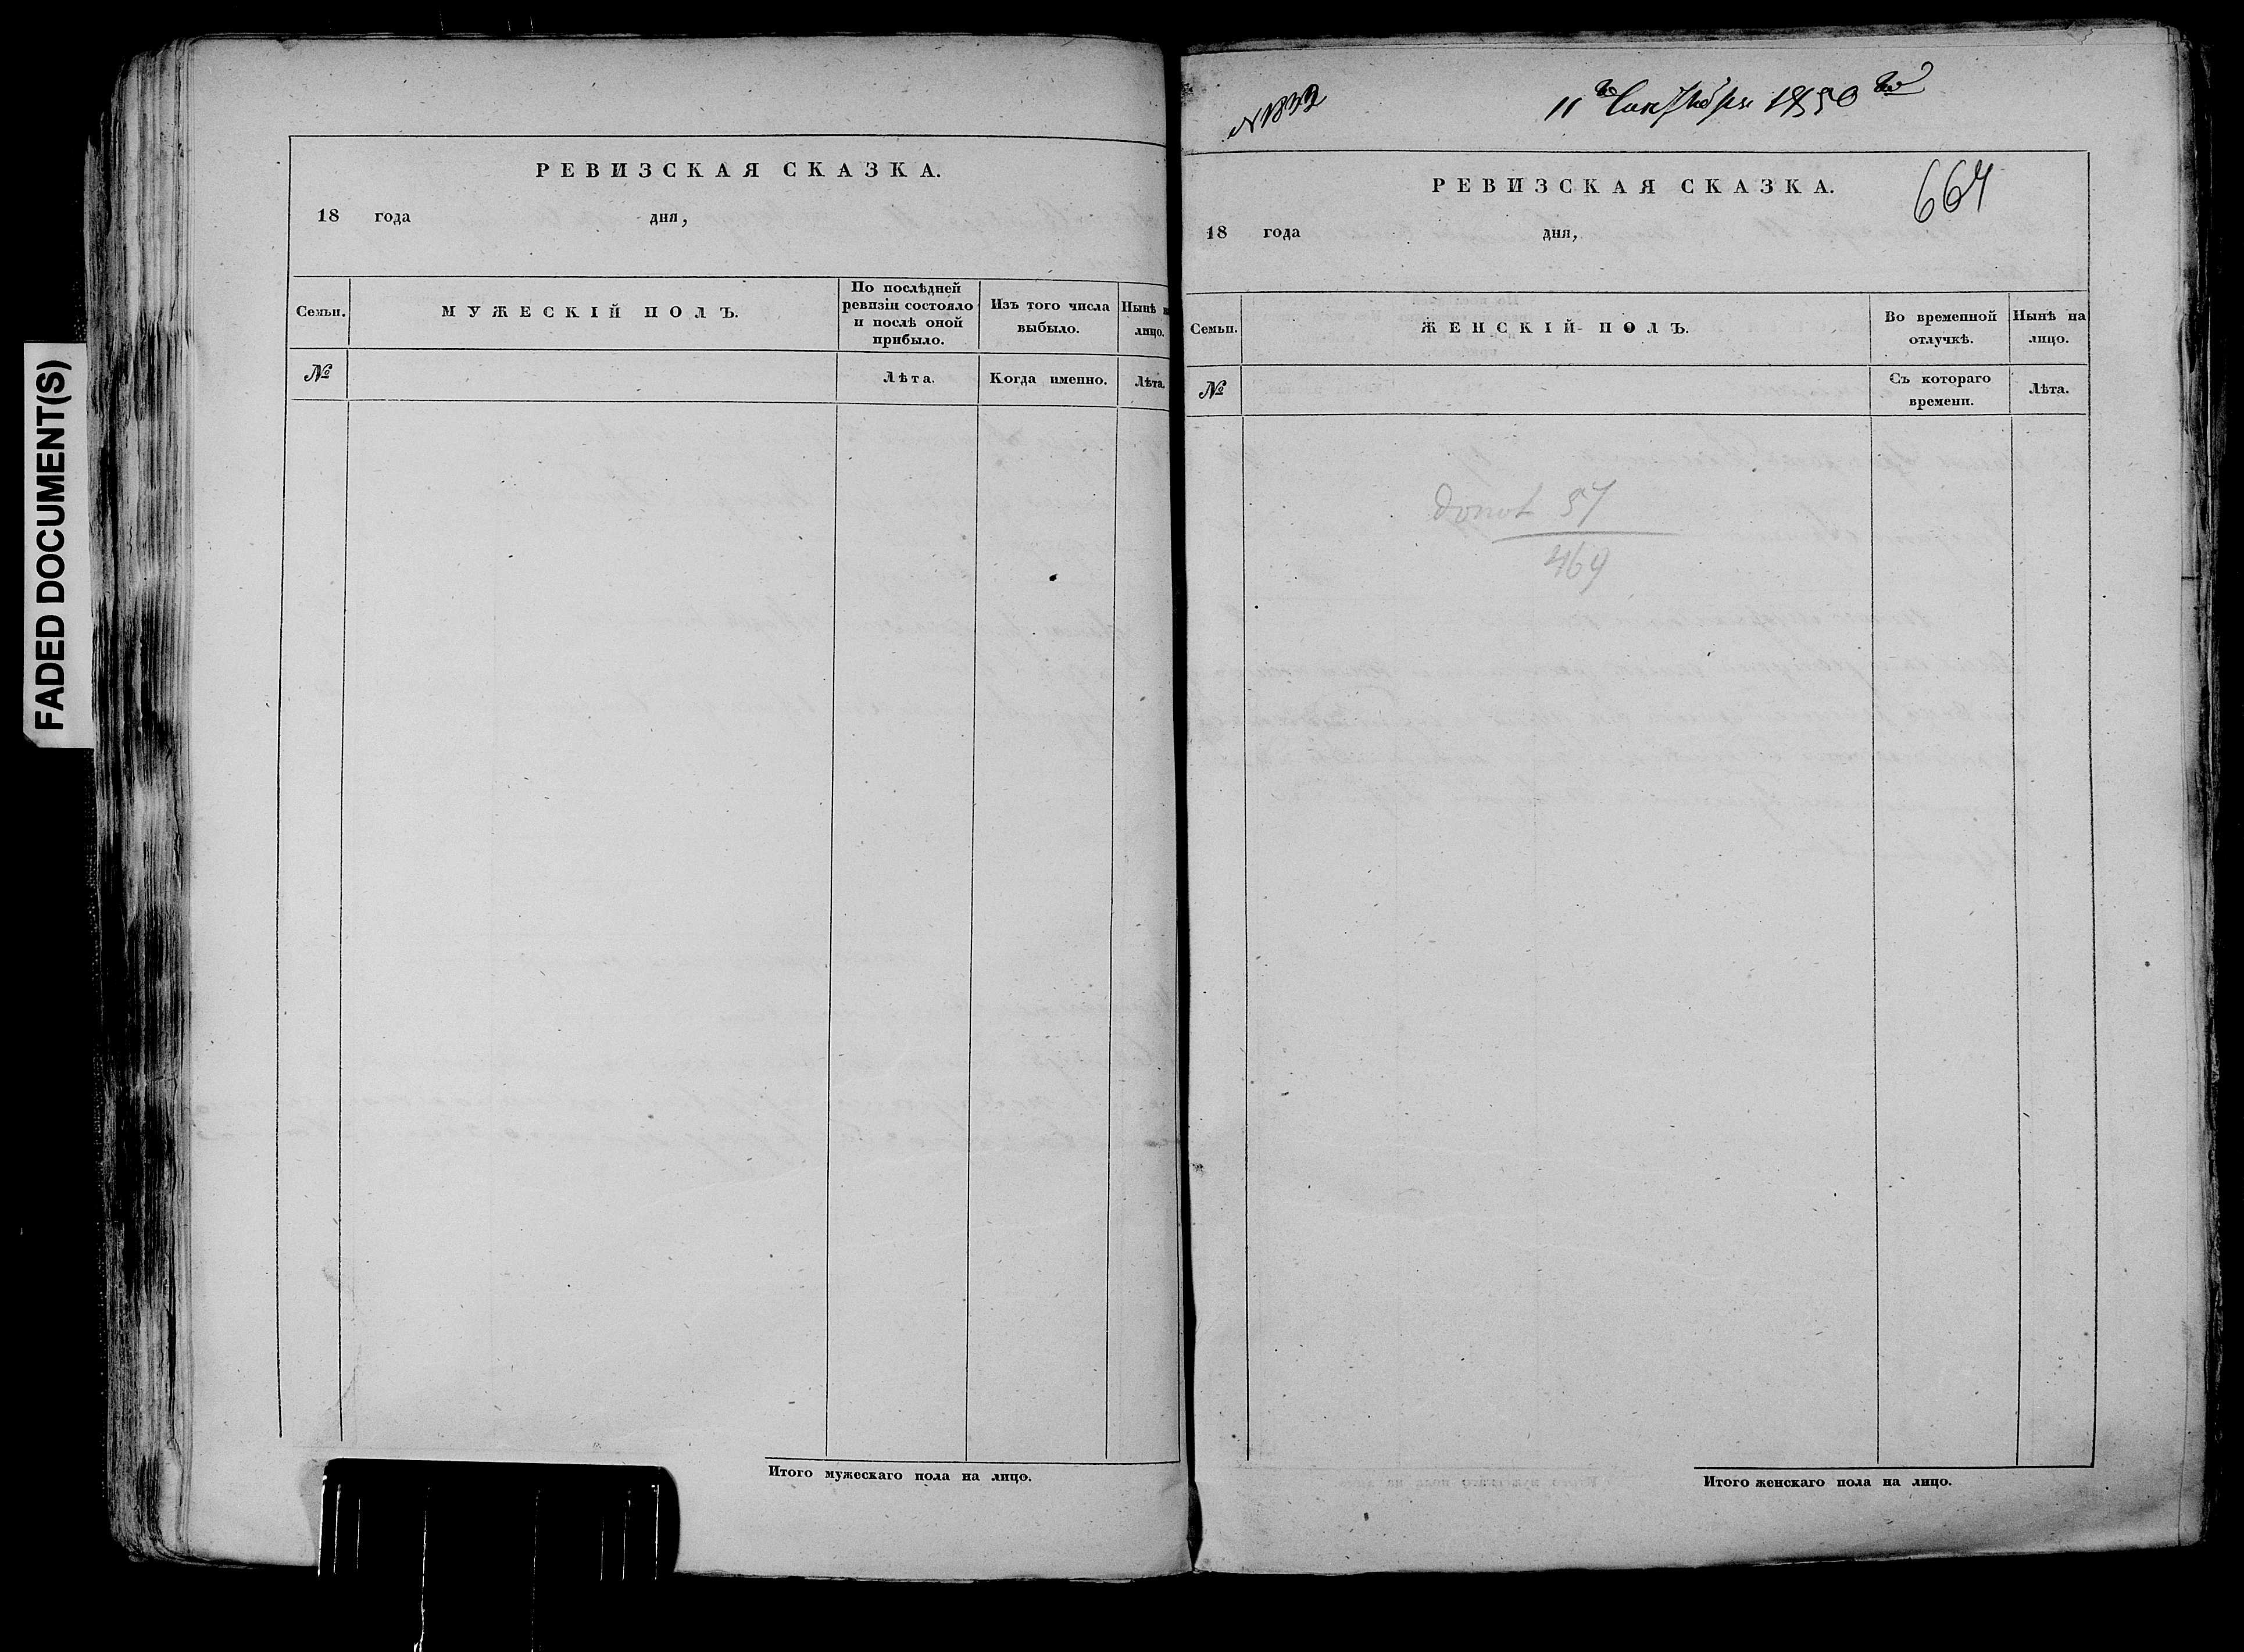 FADED DOCUMENT(S)
РЕВИЗСКАЯ СКАЗКА.
18 года дня,
Семьи.
МУЖЕСКІЙ ПОЛЪ.
По послѣдней
ревизіи состояло
и послѣ оной
прибыло.
Изъ того числа
выбыло.
Нынѣ
лицо.
№
Лѣта.
Когда именно.
Лѣта.
Итого мужескаго пола на лицо.
11го Сентября 1850го
РЕВИЗСКАЯ СКАЗКА.
664
18 года дня,
Семьи.
ЖЕНСКІЙ ПОЛЪ.
Во временной
отлучкѣ.
Нынѣ на
лицо.
№
Съ котораго
времени.
Лѣта.
57
464
Итого женскаго пола на лицо.